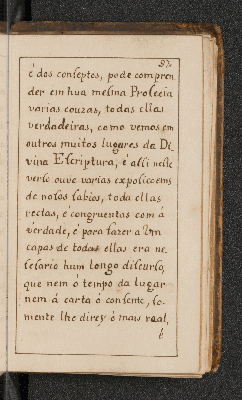 97.
é dos conseptos, pode compren
der em hua mesma Profecia
varias couzas, todas ellas
verdadeiras, como vemos em
outros muitos lugares da Di
vina Escriptura, é assi neste
verso ouve varias expoliçoems
de nosos sabios, toda ellas
rectas, é congruentas com á
verdade, é para fazer a Vm
capas de todas ellas era ne
sesario hum longo discurso,
que nem ó tempo da lugar
nem á carta o consente, so-
mente lhe direy é mais real,
é